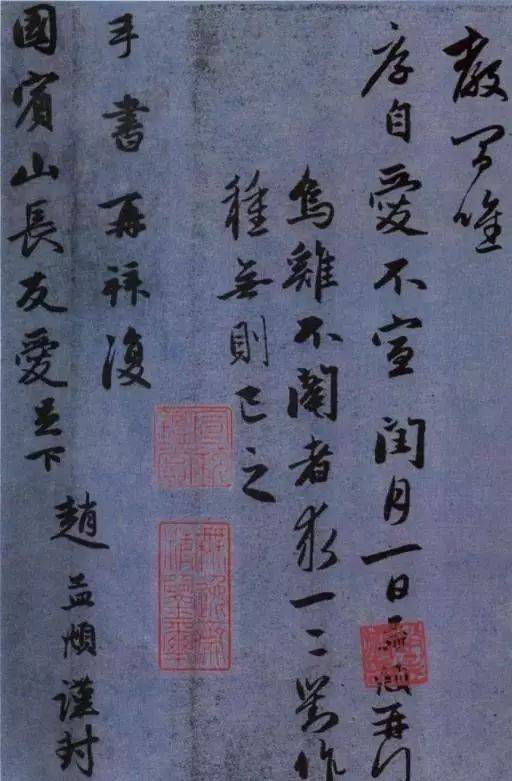 間唯
厚自愛不宣 閏月一日孟頫再拜
烏雞不闌者求一二對作
種無則已之
手書再拜復
國賓山長友愛足下 趙孟頫謹封